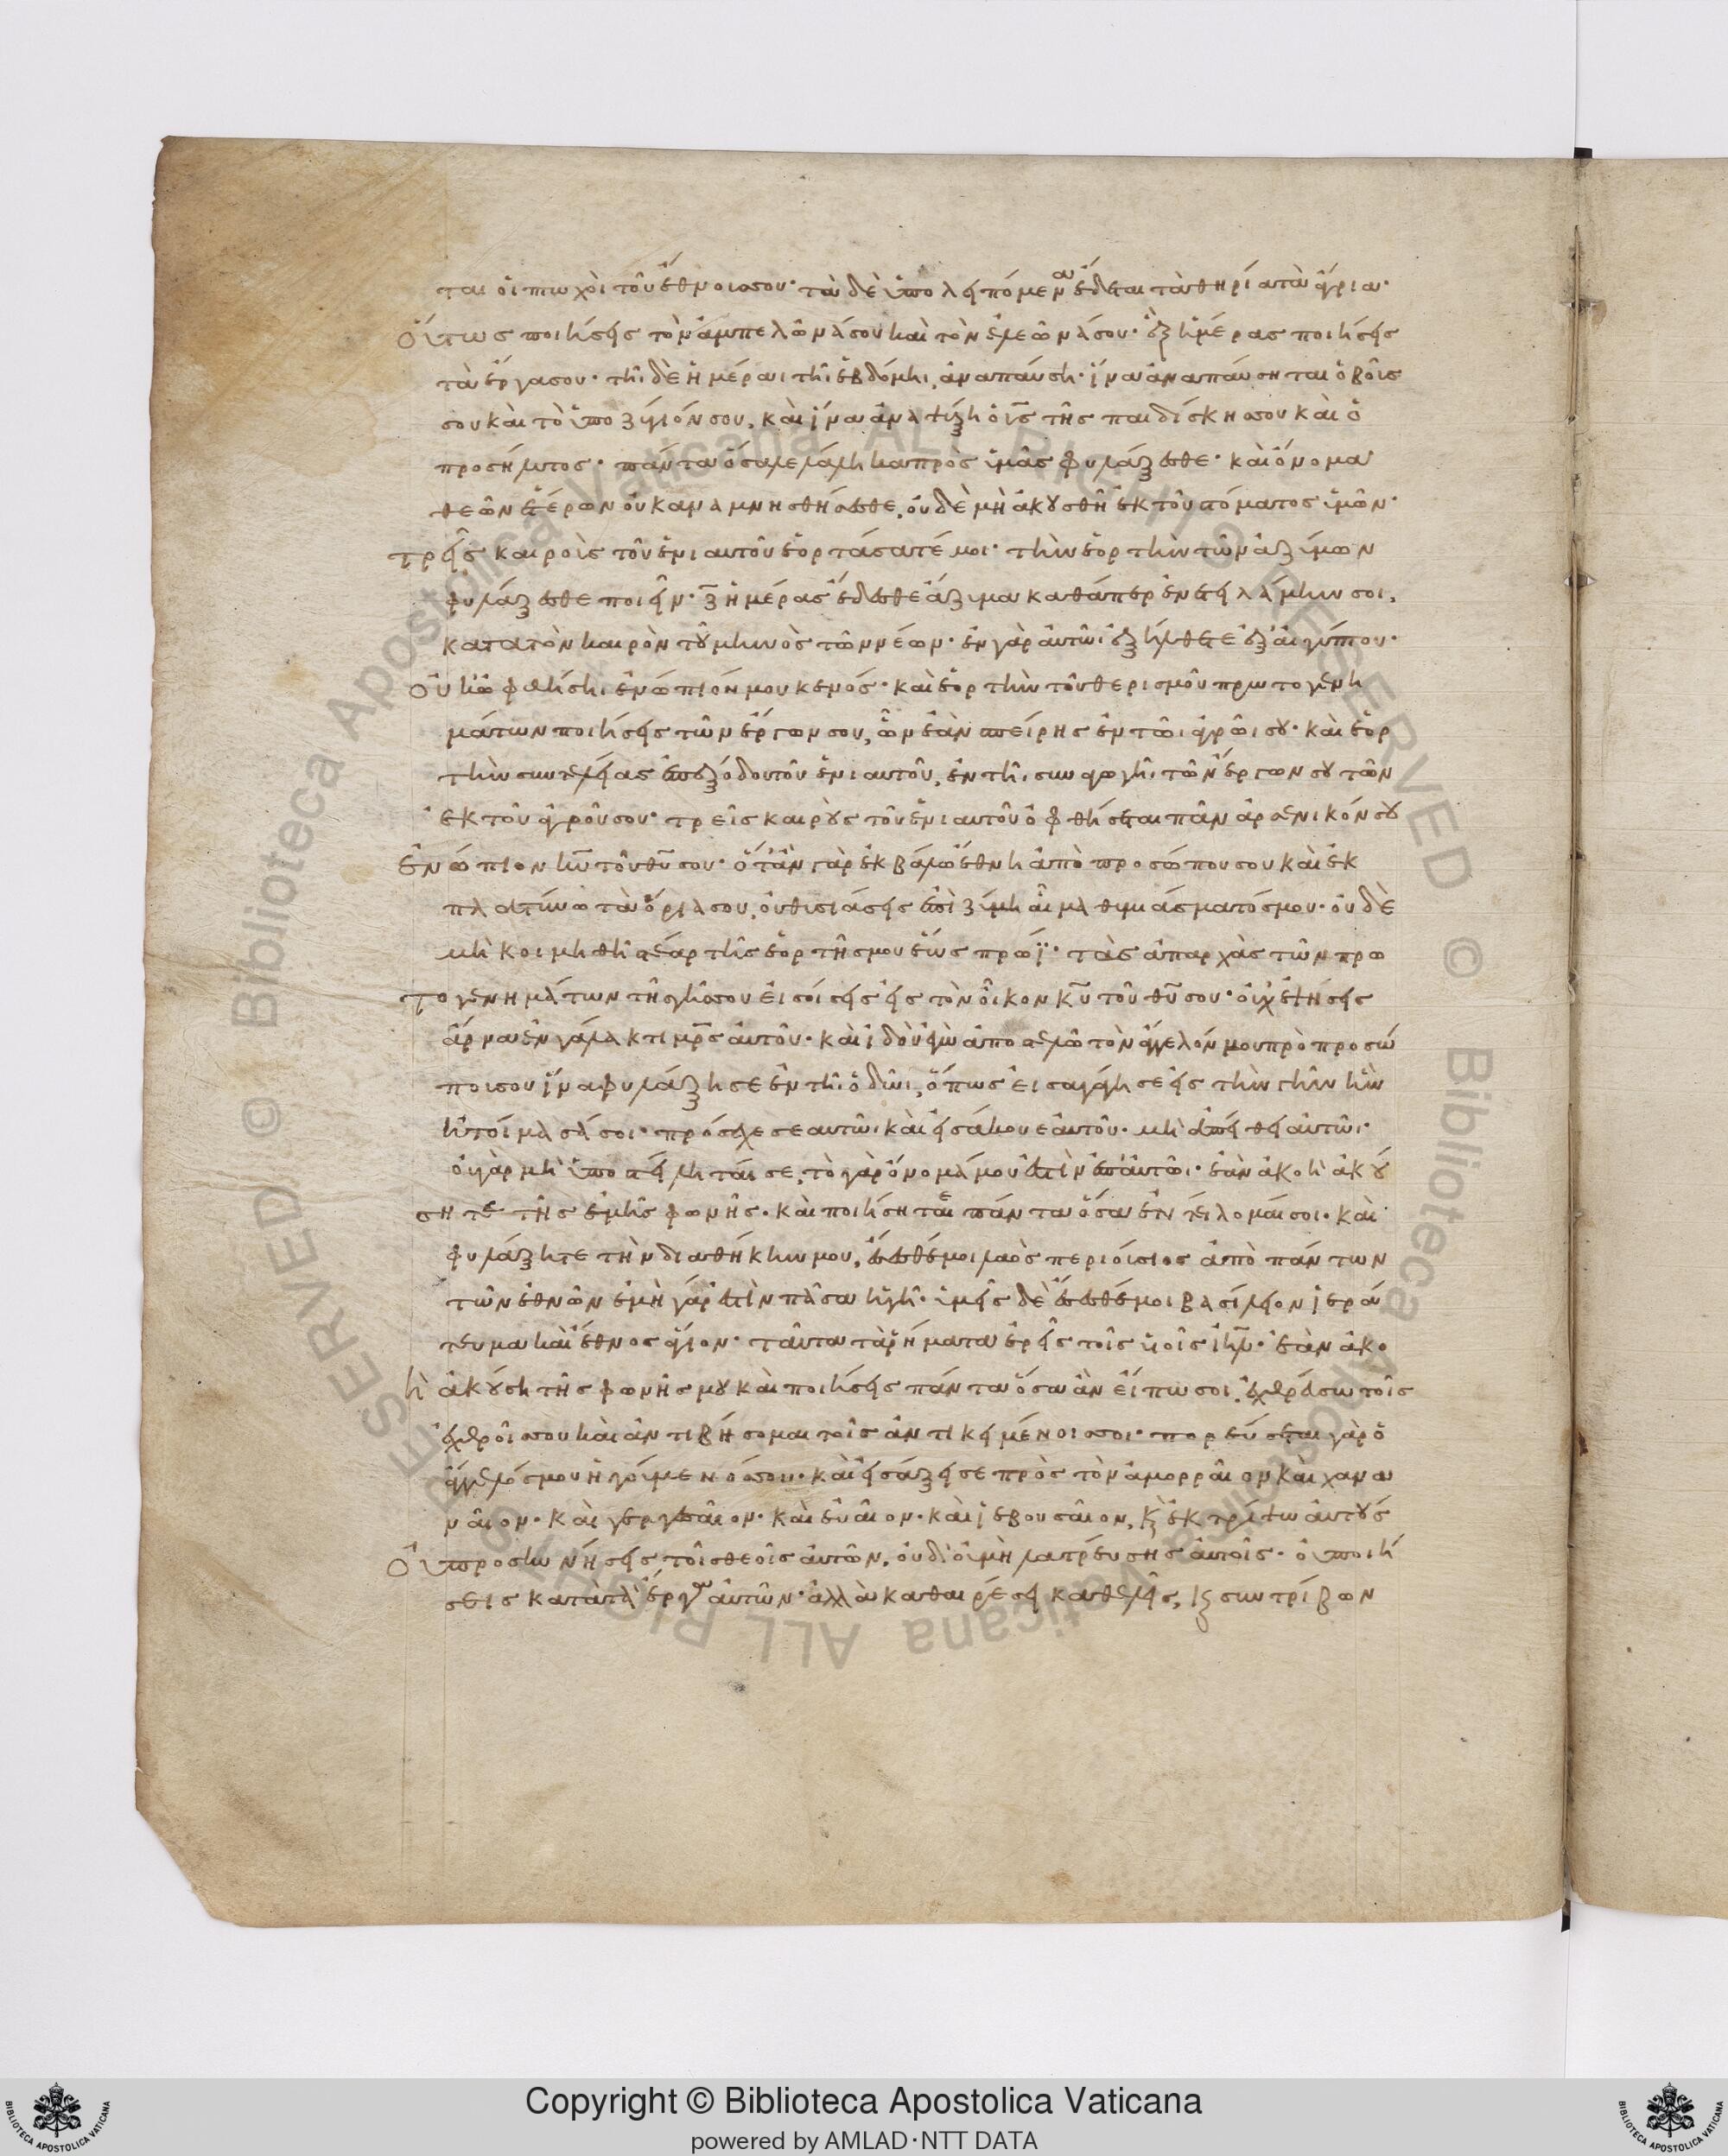 ται οἱ πτωχοὶ τοῦ ἔθνους σου· τὰ δὲ ὑπολειπόμενα ἔδεται τὰ θηρία τὰ ἄγρια·
Οὕτως ποιήσεις τὸν ἀμπελῶνά σου καὶ τὸν ἐλεῶνά σου· ἓξ ἡμέρας ποιήσεις
τὰ ἔργα σου· τῆι δὲ ἡμέραι τῆι ἑβδόμηι, ἀναπαύση· ἵνα ἀναπαύσηται ὁ βοῦς
σου καὶ τὸ ὑποζύγιόν σου, καὶ ἵνα ἀναψύξη ὁ υἱς τῆς παιδίσκης σου καὶ ὁ
προσήλυτος· πάντα ὅσα λελάληκα πρὸς ὑμᾶς φυλάξεσθε· καὶ ὄνομα
θεῶν ἑτέρων οὐκ ἀναμνησθήσεσθε, οὐδὲ μὴ ἀκουσθῆ ἐκ τοῦ στόματος ὑμῶν·
τρεῖς καιροὺς τοῦ ἐνιαυτοῦ ἑορτάσατέ μοι· τὴν ἑορτὴν τῶν ἀζύμων
φυλάξεσθε ποιεῖν· ζ ἡμέρας ἔδεσθε ἄζυμα καθάπερ ἐνετειλάμην σοι,
κατα τὸν καιρὸν τοῦ μηνὸς τῶν νέων· ἐν γὰρ αὐτῶι ἐξήλθετε ἐξ αἰγύπτου·
Οὐκ ὀφθήσηι ἐνώπιόν μου κενός· καὶ ἑορτὴν τοῦ θερισμοῦ πρωτογενη
μάτων ποιήσεις τῶν ἔργων σου, ὧν ἐὰν σπείρης ἐν τῶι ἀγρῶι σου· καὶ ἑορ
τὴν συντελείας ἐπ ἐξόδου τοῦ ἐνιαυτοῦ, ἐν τῆι συναγωγῆι τῶν ἔργων σου τῶν
ἐκ τοῦ ἀγροῦ σου· τρεῖς καιροὺς τοῦ ἐνιαυτοῦ ὀφθήσεται πᾶν ἀρσενικόν σου
ἐνώπιον κυ τοῦ θυ σου· ὅταν γὰρ ἐκβάλω ἔθνη ἀπὸ προσώπου σου καὶ ἐκ
πλατύνω τὰ ὅριά σου, οὐ θυσιάσεις ἐπὶ ζύμη αἷμα θυμιάσματός μου· οὐδὲ
μὴ κοιμηθῆ στέαρ τῆς ἑορτῆς μου ἕως πρωΐ· τὰς ἀπαρχὰς τῶν πρω
τογενημάτων τῆς γῆς σου εἰσοίσεις εἰς τὸν οἶκον κυ τοῦ θυ σου· οὐχ ἑψήσεις
ἄρνα ἐν γάλακτι μρς αὐτοῦ· καὶ ἰδοὺ ἐγὼ ἀποστελῶ τὸν ἄγγελόν μου πρὸ προσώ
που σου ἵνα φυλάξη σε ἐν τῆι ὁδῶι, ὅπως εἰσαγάγη σε εἰς τὴν γῆν ἣν
ἡτοίμασά σοι· πρόσεχε σεαυτῶι καὶ εἰσάκουε αὐτοῦ· μὴ ἀπείθει αὐτῶι·
οὐ γὰρ μὴ ὑποστείληταί σε, τὸ γὰρ ὄνομά μου ἐστὶν ἐπ αὐτῶι· ἐὰν ἀκοῆ ἀκού
σητε τῆς ἐμῆς φωνῆς· καὶ ποιήσητε πάντα ὅσα ἐντέλομαί σοι· καὶ
φυλάξητε τὴν διαθήκην μου, ἔσεσθέ μοι λαὸς περιούσιος ἀπὸ πάντων
τῶν ἐθνῶν ἐμὴ γάρ ἐστιν πᾶσα ἡ γῆ· ὑμεῖς δὲ ἔσεσθέ μοι βασίλειον ἱερά
τευμα καὶ ἔθνος ἅγιον· ταῦτα τὰ ῥήματα ἐρεῖς τοῖς υἱοῖς ιηλ· ἐὰν ἀκο
ῆ ἀκούση τῆς φωνῆς μου καὶ ποιήσεις πάντα ὅσα ἂν εἴπω σοι, ἐχθρεύσω τοῖς
ἐχθροῖς σου καὶ ἀντιβήσομαι τοῖς ἀντικειμένοις σοι· πορεύσεται γὰρ ὁ
ἄγγελός μου ἡγούμενός σου· καὶ εἰσάξει σε πρὸς τὸν ἀμορραῖον καὶ χανα
ναῖον· καὶ γεργεσαῖον· καὶ εὐαῖον· καὶ ἰεβουσαῖον, κ ἐκτρίψω αὐτούς
Οὐ προσκυνήσεις τοῖς θεοῖς αὐτῶν, οὐδ' οὐ μὴ λατρεύσης αὐτοῖς· οὐ ποιή
σεις κατὰ τὰ ἔργα αὐτῶν· ἀλλὰ καθαιρέσει καθελεῖς, κ συντρίβων
Copyright © Biblioteca Apostolica Vaticana
powered by AMLAD·NTT DATA